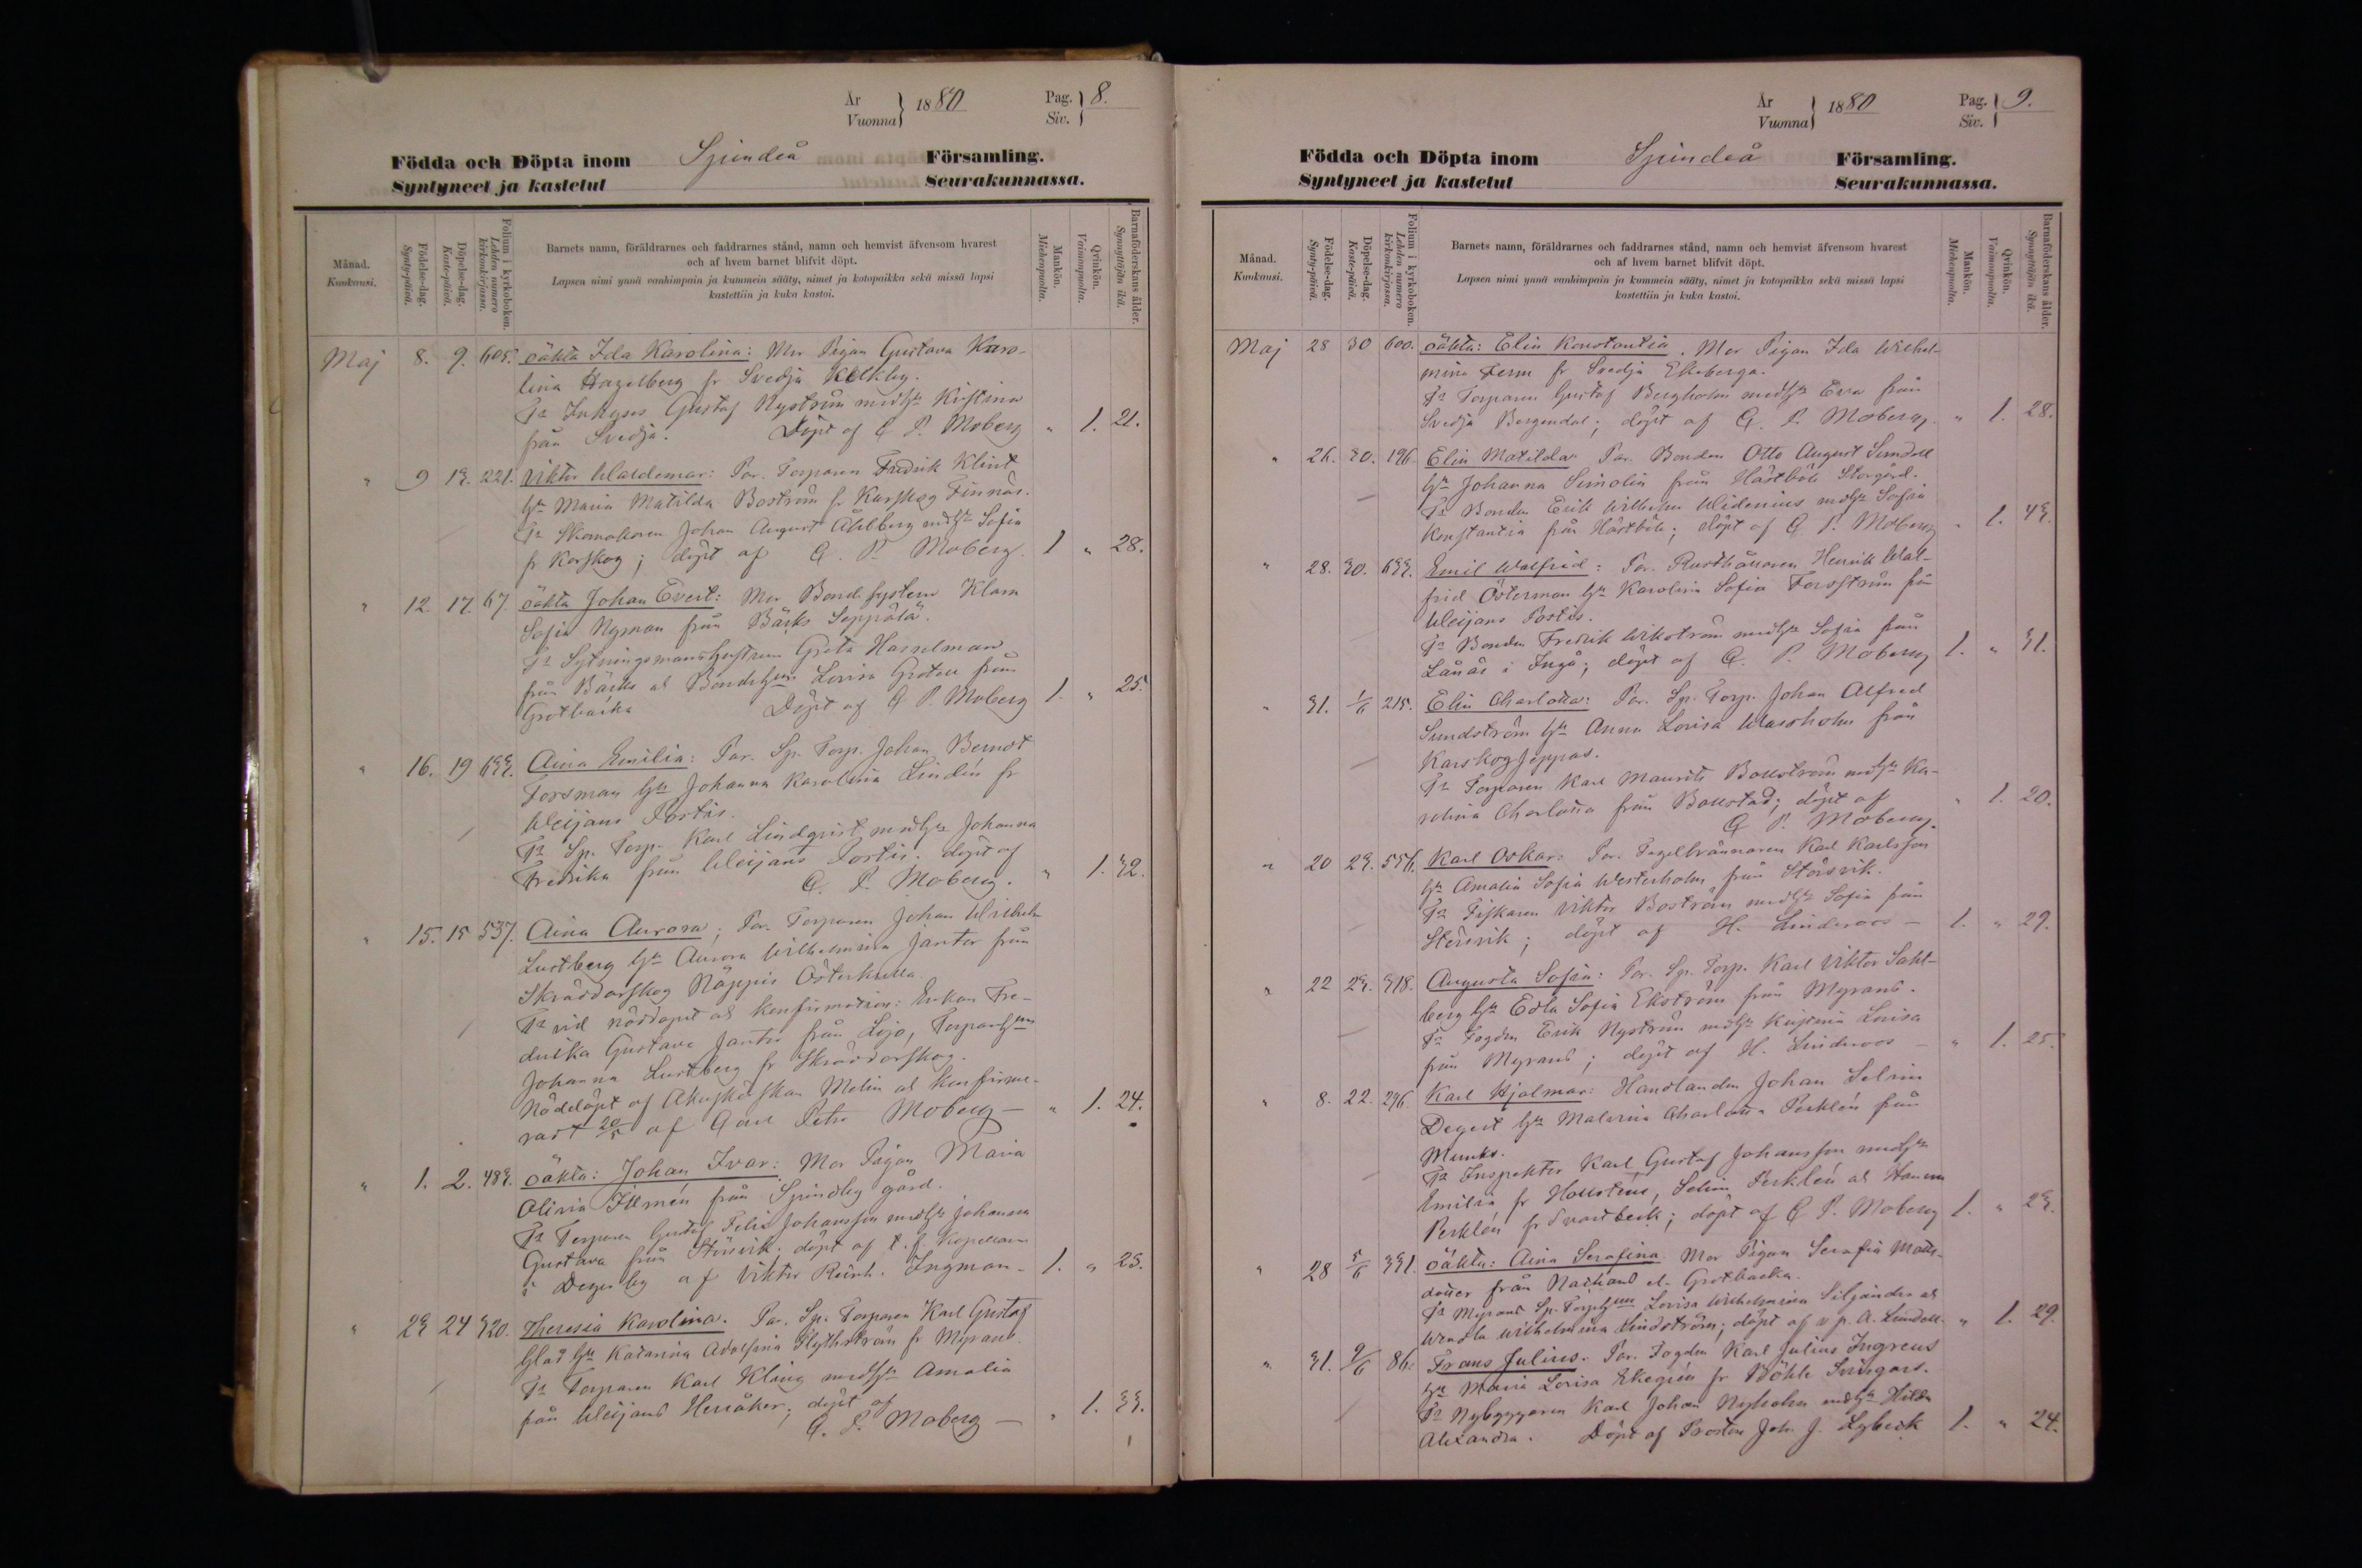 År
Vuonna } 1880
Pag.
Siv. } 8.
Födda och Döpta inom Sjundeå Församling.
Syntyneet ja kastetut Seurakunnassa.
Månad.
Kuukausi.
Födelse-dag.
Synty-päivä.
Döpelse-dag.
Kaste-päivä.
Folium i kyrkoboken.
Lehden numero kirkonkirjassa.
Barnets namn, föräldrarnes och faddrarnes stånd, namn och hemvist äfvensom hvarest
och af hvem barnet blifvit döpt.
Lapsen nimi ynnä vanhimpain ja kummein sääty, nimet ja kotopaikka sekä missä lapsi
kastettiin ja kuka kastoi.
Mankön.
Miehenpuolta.
Qvinkön.
Vaimonpuolta.
Barnaföderskans ålder.
Synnyttäjän ikä.
Maj 8. 9. 605. oäkta Ida Karolina: Mor Pigan Gustava Karo-
lina Hagelberg fr Svedja
Fr Inhyses Gustaf Nyström medhu Kristina
från Svedja. Döpt af C P. Moberg " 1. 21.
" 9 13. 221. Viktor Waldemar: Par. Torparen Fredrik Klint
hu Maria Matilda Boström fr Karskog Finnäs.
Fr Skomakaren Johan August Åhlberg mdhu Sofia
fr Karskog; döpt af C. P. Moberg. 1 " 28.
" 12. 17. 67. oäkta Johan Evert: Mor Bond. system Klara
Sofia Nyman från Bäcks Seppälä.
Fr Sytningsmanshustrun Greta Hasselman
från Bäcks och Bondehun Lovisa from
Grotbacka Döpt af C P. Moberg 1. " 25.
" 16. 19 633. Aina Emilia: Par. Sp. Torp. Johan Berndt
Forsman hu Johanna Karolina Lindén fr
Weijans Postis.
Fr Sp. Torp. Karl Lindqvist medhu Johanna
Fredrika från Weijans Postis. döpt af
C. P. Moberg. " 1. 32.
" 15. 15 537. Aina Aurora; Par. Torparen Johan Wilhelm
Lustberg hu Aurora Wilhelmina Janter från
Skräddarskog Näppis Österkulla.
Fr vid nöddopet och konfirmation: Enkan Fre-
drika Gustava Janter från Lojo, Torparehun
Johanna Lustberg fr Skräddarskog.
Nöddöpt af Akuskörskan Melin och konfirme-
radt 20/5 af Carl Petr Moberg — " 1. 24.
" 1. 2. 483. oäkta: Johan Ivar: Mor Pigan Maria
Olivia från Sjundby gård.
Fr Torparen Gustaf Felix Johansson medhu Johanna
Gustava från Störsvik. döpt af t. f. Kapellan
i Degerby af Viktor Reinh. Ingman — 1. " 25.
" 23 24 320. Theresia Karolina. Par. Sp. Torparen Karl Gustaf
Glad hu Katarina Adolfina Flythström fr Myrans.
Fr Torparen Karl Kling medhu Amalia
från Weijans Herråker; döpt af
C. P. Moberg — " 1. 33.
År
Vuonna } 1880
Pag.
Siv. } 9.
Födda och Döpta inom Sjundeå Församling.
Syntyneet ja kastetut Seurakunnassa.
Månad.
Kuukausi.
Födelse-dag.
Synty-päivä.
Döpelse-dag.
Kaste-päivä.
Folium i kyrkoboken.
Lehden numero kirkonkirjassa.
Barnets namn, föräldrarnes och faddrarnes stånd, namn och hemvist äfvensom hvarest
och af hvem barnet blifvit döpt.
Lapsen nimi ynnä vanhimpain ja kummein sääty, nimet ja kotopaikka sekä missä lapsi
kastettiin ja kuka kastoi.
Mankön.
Miehenpuolta.
Qvinkön.
Vaimonpuolta.
Barnaföderskans ålder.
Synnyttäjän ikä.
Maj 28 30 600. oäkta: Elin Konstantia. Mor Pigan Ida Wilhel-
mina Ferm fr Svedja Ekeberga.
Fr Torparen Gustaf Bergholm medhu Eva från
Svedja Bergendal; döpt af C. P. Moberg. " 1. 28.
" 26. 30. 196. Elin Matilda. Par. Bonden Otto August Sundell
hu Johanna Simolin från Hästböle Storgård.
Fr Bonden Erik Wilhelm Widenius mdhu Sofia
Konstantia från Hästböle; döpt af C. P. Moberg " 1. 43.
" 28. 30. 633. Emil Walfrid: Par. Rusthållaren Henrik Wal-
frid Österman hu Karolina Sofia Forsström från
Weijans Postis.
Fr Bonden Fredrik Wikström medhu Sofia från
Lånäs i Ingå; döpt af C. P. Moberg 1. " 31.
" 31. 1/6 215. Elin Charlotta: Par. Sp. Torp. Johan Alfred
Sundström hu Anna Lovisa Wasoholm från
Karskog Jeppas.
Fr Torparen Karl Maurits Bollström mdhu Ka-
rolina Charlotta från Bollstad; döpt af
C P. Moberg. " 1. 20.
" 20 23. 556. Karl Oskar. Par. Tegelbrännaren Karl Karlsson
hu Amalia Sofia Westerholm från Störsvik.
Fr Fiskaren Viktor Boström medhu Sofia från
Störsvik; döpt af H. Linderoos — 1. " 29.
" 22 23. 318. Augusta Sofia: Par. Sp. Torp. Karl Viktor Sahl-
berg hu Edla Sofia Ekström från Myrans.
Fr Fogden Erik Nyström mdhu Kristina Lovisa
från Myrans; döpt af H. Linderoos — " 1. 25.
" 8. 22. 296. Karl Hjalmar: Handlanden Johan Selim
Degert hu Malvina Charlotta Perklén från
Munks.
Fr Inspektor Karl Gustaf Johansson medhu
Emilia fr Hollstens, Selim Perklén och Hanna
Perklén fr Svartbeck; döpt af C P. Moberg 1. " 23.
" 28 5/6 331. oäkta: Aina Serafina. Mor Pigan Serafia Matts-
dotter från Nackans el. Grotbacka.
Fr Myrans Sp. Torphun Lovisa Wilhelmina Siljander och
Wendla Wilhelmina Lindström; döpt af v. p. A. Lindell. " 1. 29.
" 31. 9/6 86. Frans Julius. Par. Fogden Karl Julius Ingreus
hu Maria Lovisa Ekegren fr Böhle Svingars.
Fr Nybyggaren Karl Johan Nyholm mdhu Hilda
Alexandra. Döpt af Prosten Joh. J. Lybeck 1. " 24.